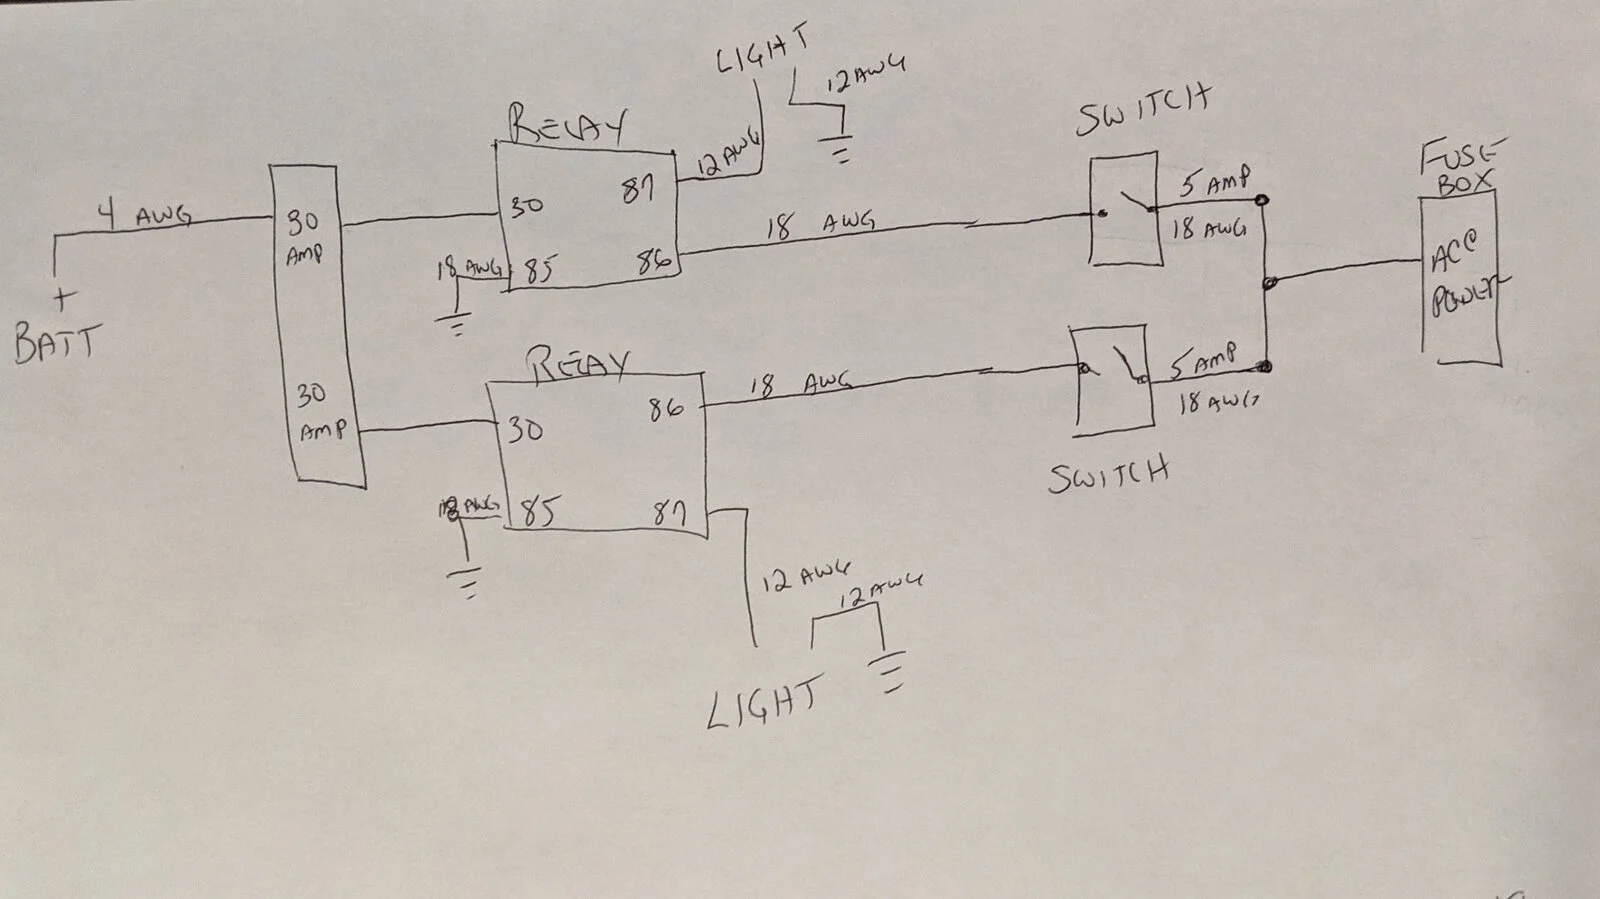 LIGHT
12 AWG
RELAY
12 AWG
SWITCH
FUSE
BOX
87
5 AMP
4 AWG
30
AMP
30
18 AWG
18 AWG
ACC
POWER
18 AWG
85
86
+
BATT
RELAY
5 AMP
86
18 AWG
18 AWG
30
AMP
30
SWITCH
18 AWG
85
87
12 AWG
12 AWG
LIGHT